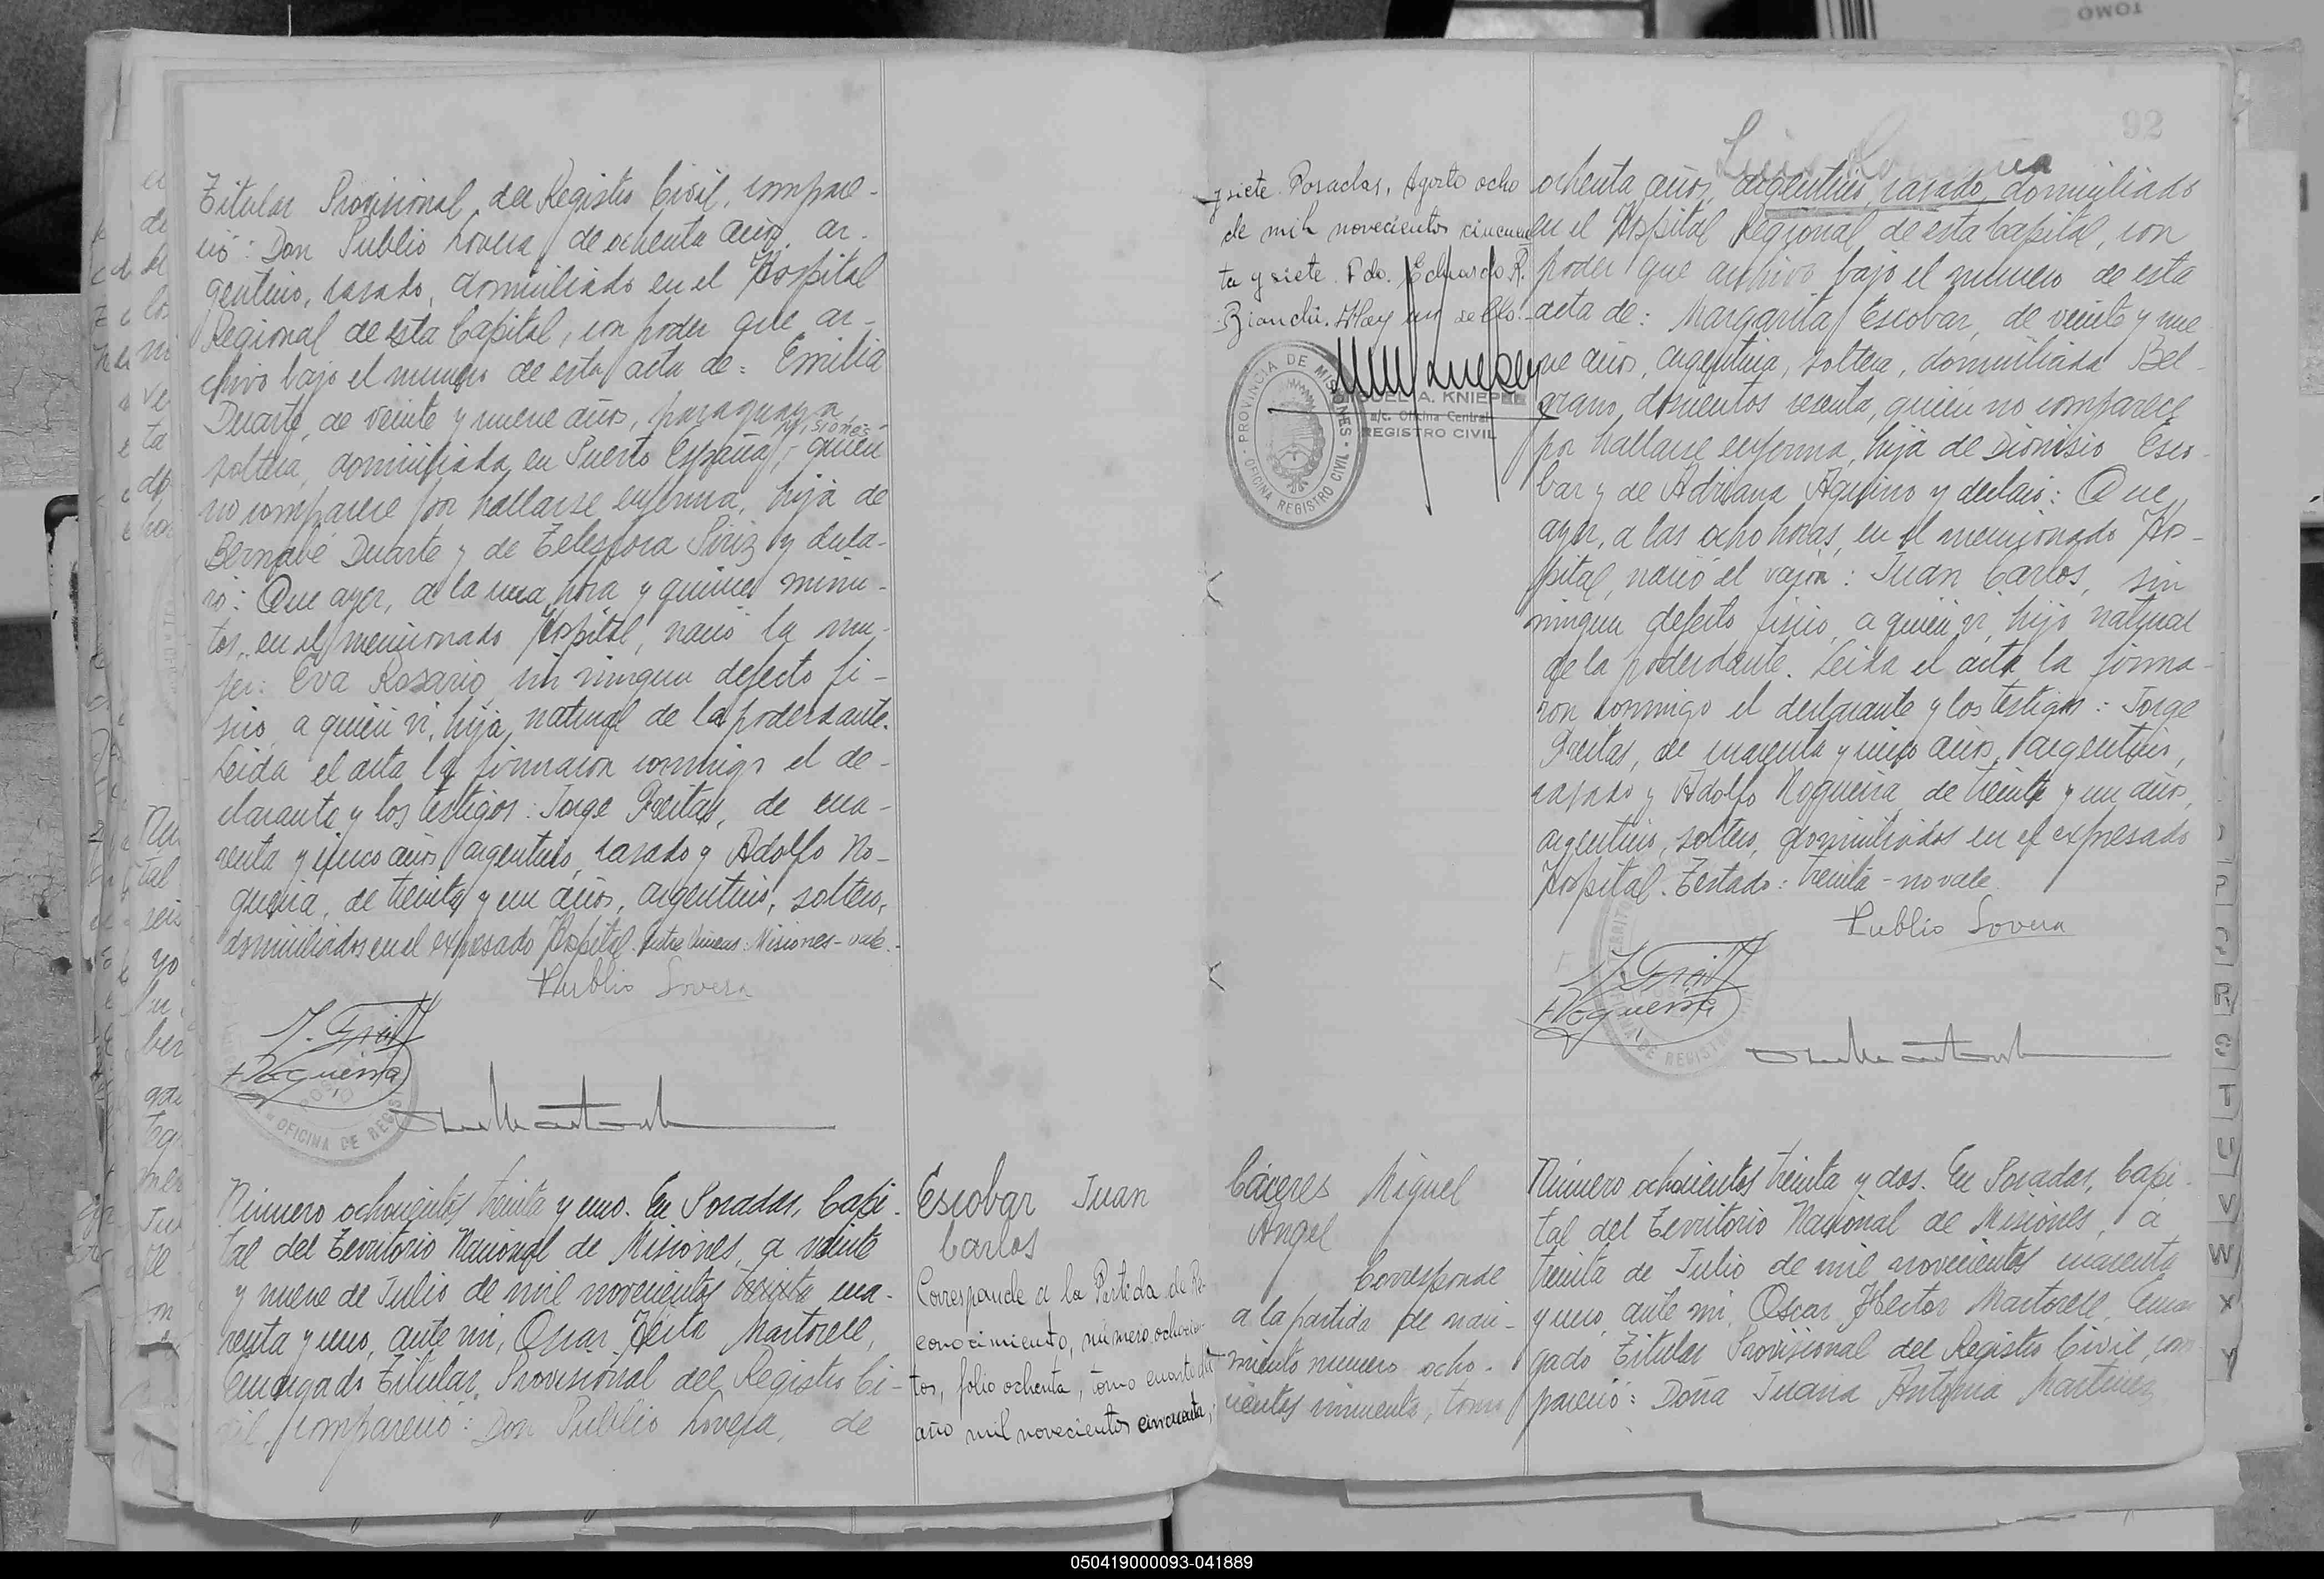 Titular Provisional del Registro Civil, compare-
ció: Don Publio Lovera, de ochenta años, ar-
gentino, casado, domiciliado en el Hospital
Regional de esta Capital, con poder que ar-
chivo bajo el numero de esta acta de: Emilia
Duarte, de veinte y nueve años, paraguaya,
Misiones
soltera, domiciliada en Puerto España, quién
no comparece por hallarse enferma, hija de
Bernabé Duarte y de Telesfora Siriz y decla-
ró: Que ayer, a la una hora y quince minu-
tos, en el mencionado Hospital, nació la mu-
jer: Eva Rosario sin ningun defecto fi-
sico, a quién ví, hija natural de la poderdante.
Leída el acta la firmaron conmigo el de-
clarante y los testigos: Jorge Freitas, de cua-
renta y cinco años, argentino, casado y Adolfo No-
gueira, de treinta y un años, argentino, soltero,
domiciliados en el expresado Hospital. Entre lineas: Misiones - vale.-
Publio Lovera
J. Freitas
A Nogueira
OFICINA DE REGIS
Número ochocientos treinta y uno. En Posadas, Capi-
tal del Territorio Nacional de Misiones, a veinte
y nueve de Julio de mil novecientos treinta cua-
renta y uno, ante mi, Oscar Heitor Martorell,
Encargado Titular Provisional del Registro Ci-
vil, compareció: Don Publio Lovera, de
Escobar Juan
Carlos
Corresponde a la Partida de Re-
conocimiento, número ochocien-
tos, folio ochenta, tomo cuarto del
año mil novecientos cincuenta,
y siete. Posadas, Agosto ocho
de mil novecientos cincuen
ta y siete. Fdo. Eduardo R.
Bianchi. Hay un sello.-
PROVINCIA DE MISIONES
OFICINA REGISTRO CIVIL
A. KNIEPE
a/c. Oficina Central
REGISTRO CIVIL
92
Luis
ochenta años, argentino, casado, domiciliado
en el Hospital Regional de esta Capital, con
poder que archivo bajo el numero de esta
acta de: Margarita Escobar, de veinte y nue
ve años, argentina, soltera, domiciliada Bel-
grano doscientos sesenta, quién no comparece
por hallarse enferma, hija de Dionisio Esco-
bar y de Adriana Aquino y declaró: Que
ayer, a las ocho horas, en el mencionado Hos-
pital, nació el varón: Juan Carlos, sin
ningun defecto fisico, a quién vi, hijo natural
de la poderdante. Leída el acta la firma-
ron conmigo el declarante y los testigos: Jorge
Freitas, de cuarenta y cinco años, argentino,
casado y Adolfo Nogueira de treinta y un años,
argentino, soltero, domiciliados en el expresado
Hospital. Testado: treinta - no vale.
Publio Lovera
J. Freitas
A Nogueira
Cáceres Miguel
Angel
Corresponde
a la partida de naci-
miento numero ocho-
cientos cincuenta, tomo
Número ochocientos treinta y dos. En Posadas, Capi-
tal del Territorio Nacional de Misiones, a
treinta de Julio de mil novecientos cuarenta
y uno, ante mi, Oscar Heitor Martorell, Encar
gado Titular Provisional del Registro Civil, com
pareció: Doña Juana Antonia Martinez
P
Q
R
S
T
U
V
W
X
Y
TOMO
050419000093-041889